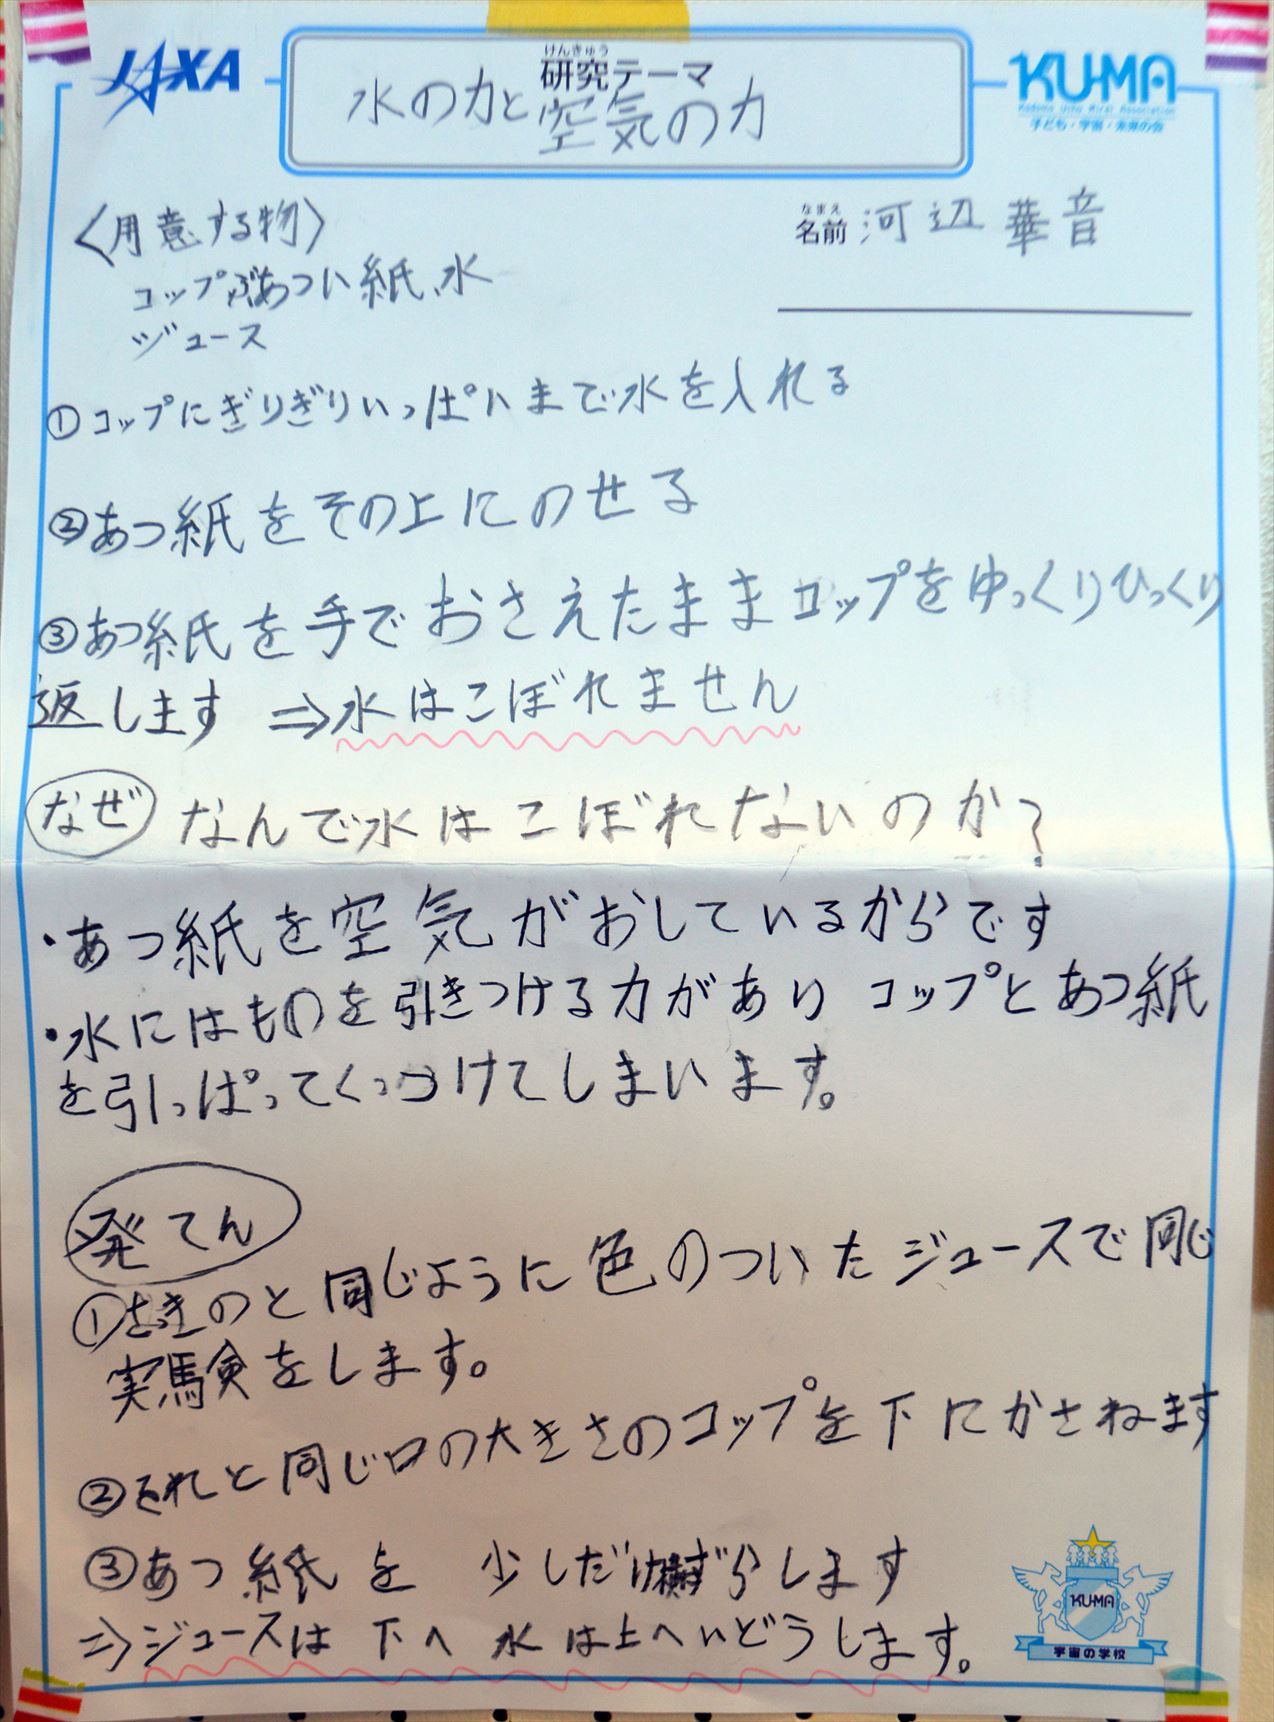 JAXA
けんきゅう
研究テーマ
水の力と空気の力
KU-MA
Kodomo Uchu Mirai Association
子ども・宇宙・未来の会
〈用意する物〉
なまえ
名前 河辺華音
コップ、ぶあつい紙、水
ジュース
①コップにぎりぎりいっぱいまで水を入れる
②あつ紙をその上にのせる
③あつ紙を手でおさえたままコップをゆっくりひっくり
返します ⇒水はこぼれません
なぜ なんで水はこぼれないのか?
・あつ紙を空気がおしているからです
・水にはものを引きつける力があり コップとあつ紙
を引っぱってくっつけてしまいます。
発てん
①さっきのと同じように色のついたジュースで同じ
実験をします。
②それと同じ口の大きさのコップを下にかさねます
③あつ紙を 少しだけ横ずらします
⇒ジュースは下へ 水は上へいどうします。
KU-MA
宇宙の学校